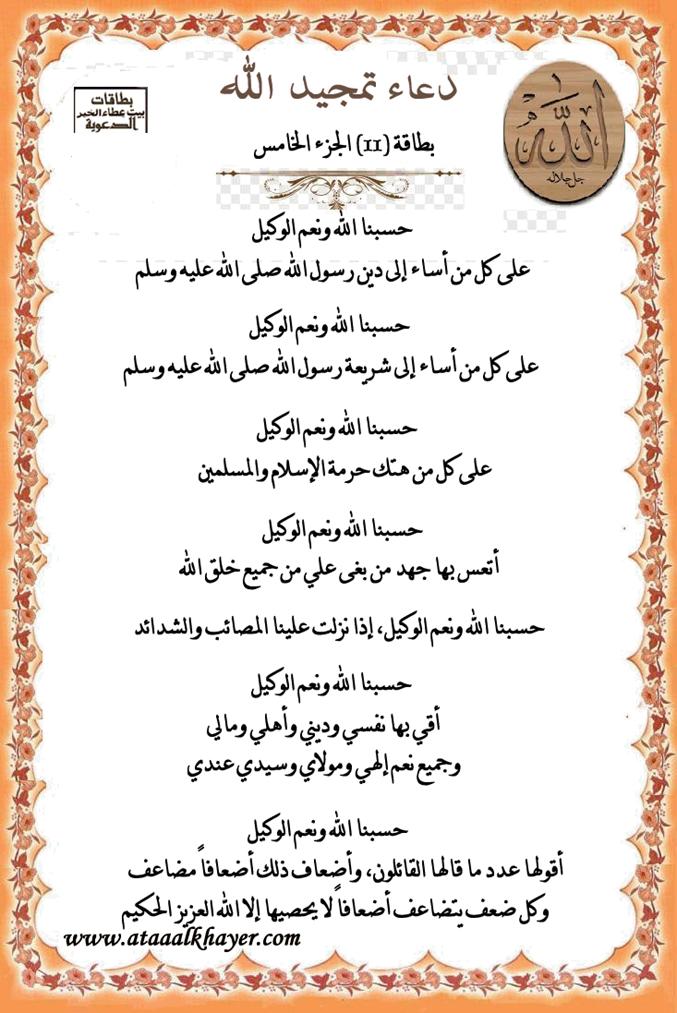 دعاء تمجيد الله
بطاقات
بيت عطاء الخير
الدعوية
الله
جل جلاله
بطاقة (11) الجزء الخامس
حسبنا الله ونعم الوكيل
على كل من أساء إلى دين رسول الله صلى الله عليه وسلم
حسبنا الله ونعم الوكيل
على كل من أساء إلى شريعة رسول الله صلى الله عليه وسلم
حسبنا الله ونعم الوكيل
على كل من هتك حرمة الإسلام والمسلمين
حسبنا الله ونعم الوكيل
أتعس بها جهد من بغى علي من جميع خلق الله
حسبنا الله ونعم الوكيل، إذا نزلت علينا المصائب والشدائد
حسبنا الله ونعم الوكيل
أقي بها نفسي وديني وأهلي ومالي
وجميع نعم إلهي ومولاي وسيدي عندي
حسبنا الله ونعم الوكيل
أقولها عدد ما قالها القائلون، وأضعاف ذلك أضعافاً مضاعف
وكل ضعف يتضاعف أضعافاً لا يحصيها إلا الله العزيز الحكيم
www.ataaalkhayer.com